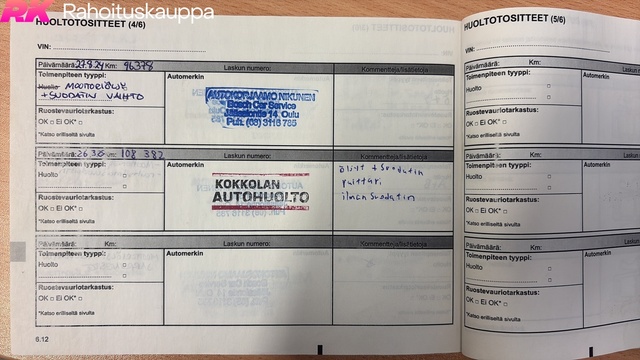 RK Rahoituskauppa
HUOLTOTOSITTEET (4/6)
VIN:
Päivämäärä: 27.8.24 Km: 96378
Laskun numero:
Kommentteja/lisätietoja
Toimenpiteen tyyppi:
Huolto MOOTTORIÖLJY
+SUODATIN VAIHTO
Ruostevauriotarkastus:
OK □ Ei OK* □
*Katso erilliseltä sivulta
Automerkin
AUTOKORJAAMO NIKUNEN
Bosch Car Service
14 Oulu
Puh. (08) 3116 785
Päivämäärä: Km: 108 382
Laskun numero:
Kommentteja/lisätietoja
Toimenpiteen tyyppi:
Huolto □
□
Ruostevauriotarkastus:
OK □ Ei OK* □
*Katso erilliseltä sivulta
Automerkin
KOKKOLAN
AUTOHUOLTO
öljyt + suodatin
ilman suodatin
Päivämäärä: Km:
Laskun numero:
Kommentteja/lisätietoja
Toimenpiteen tyyppi:
Huolto □
□
Ruostevauriotarkastus:
OK □ Ei OK* □
*Katso erilliseltä sivulta
Automerkin
6.12
HUOLTOTOSITTEET (5/6)
VIN:
Päivämäärä: Km:
Toimenpiteen tyyppi:
Huolto □
□
Ruostevauriotarkastus:
OK □ Ei OK* □
*Katso erilliseltä sivulta
Automerkin
Päivämäärä: Km:
Toimenpiteen tyyppi:
Huolto □
□
Ruostevauriotarkastus:
OK □ Ei OK* □
*Katso erilliseltä sivulta
Automerkin
Päivämäärä: Km:
Toimenpiteen tyyppi:
Huolto □
□
Ruostevauriotarkastus:
OK □ Ei OK* □
*Katso erilliseltä sivulta
Automerkin